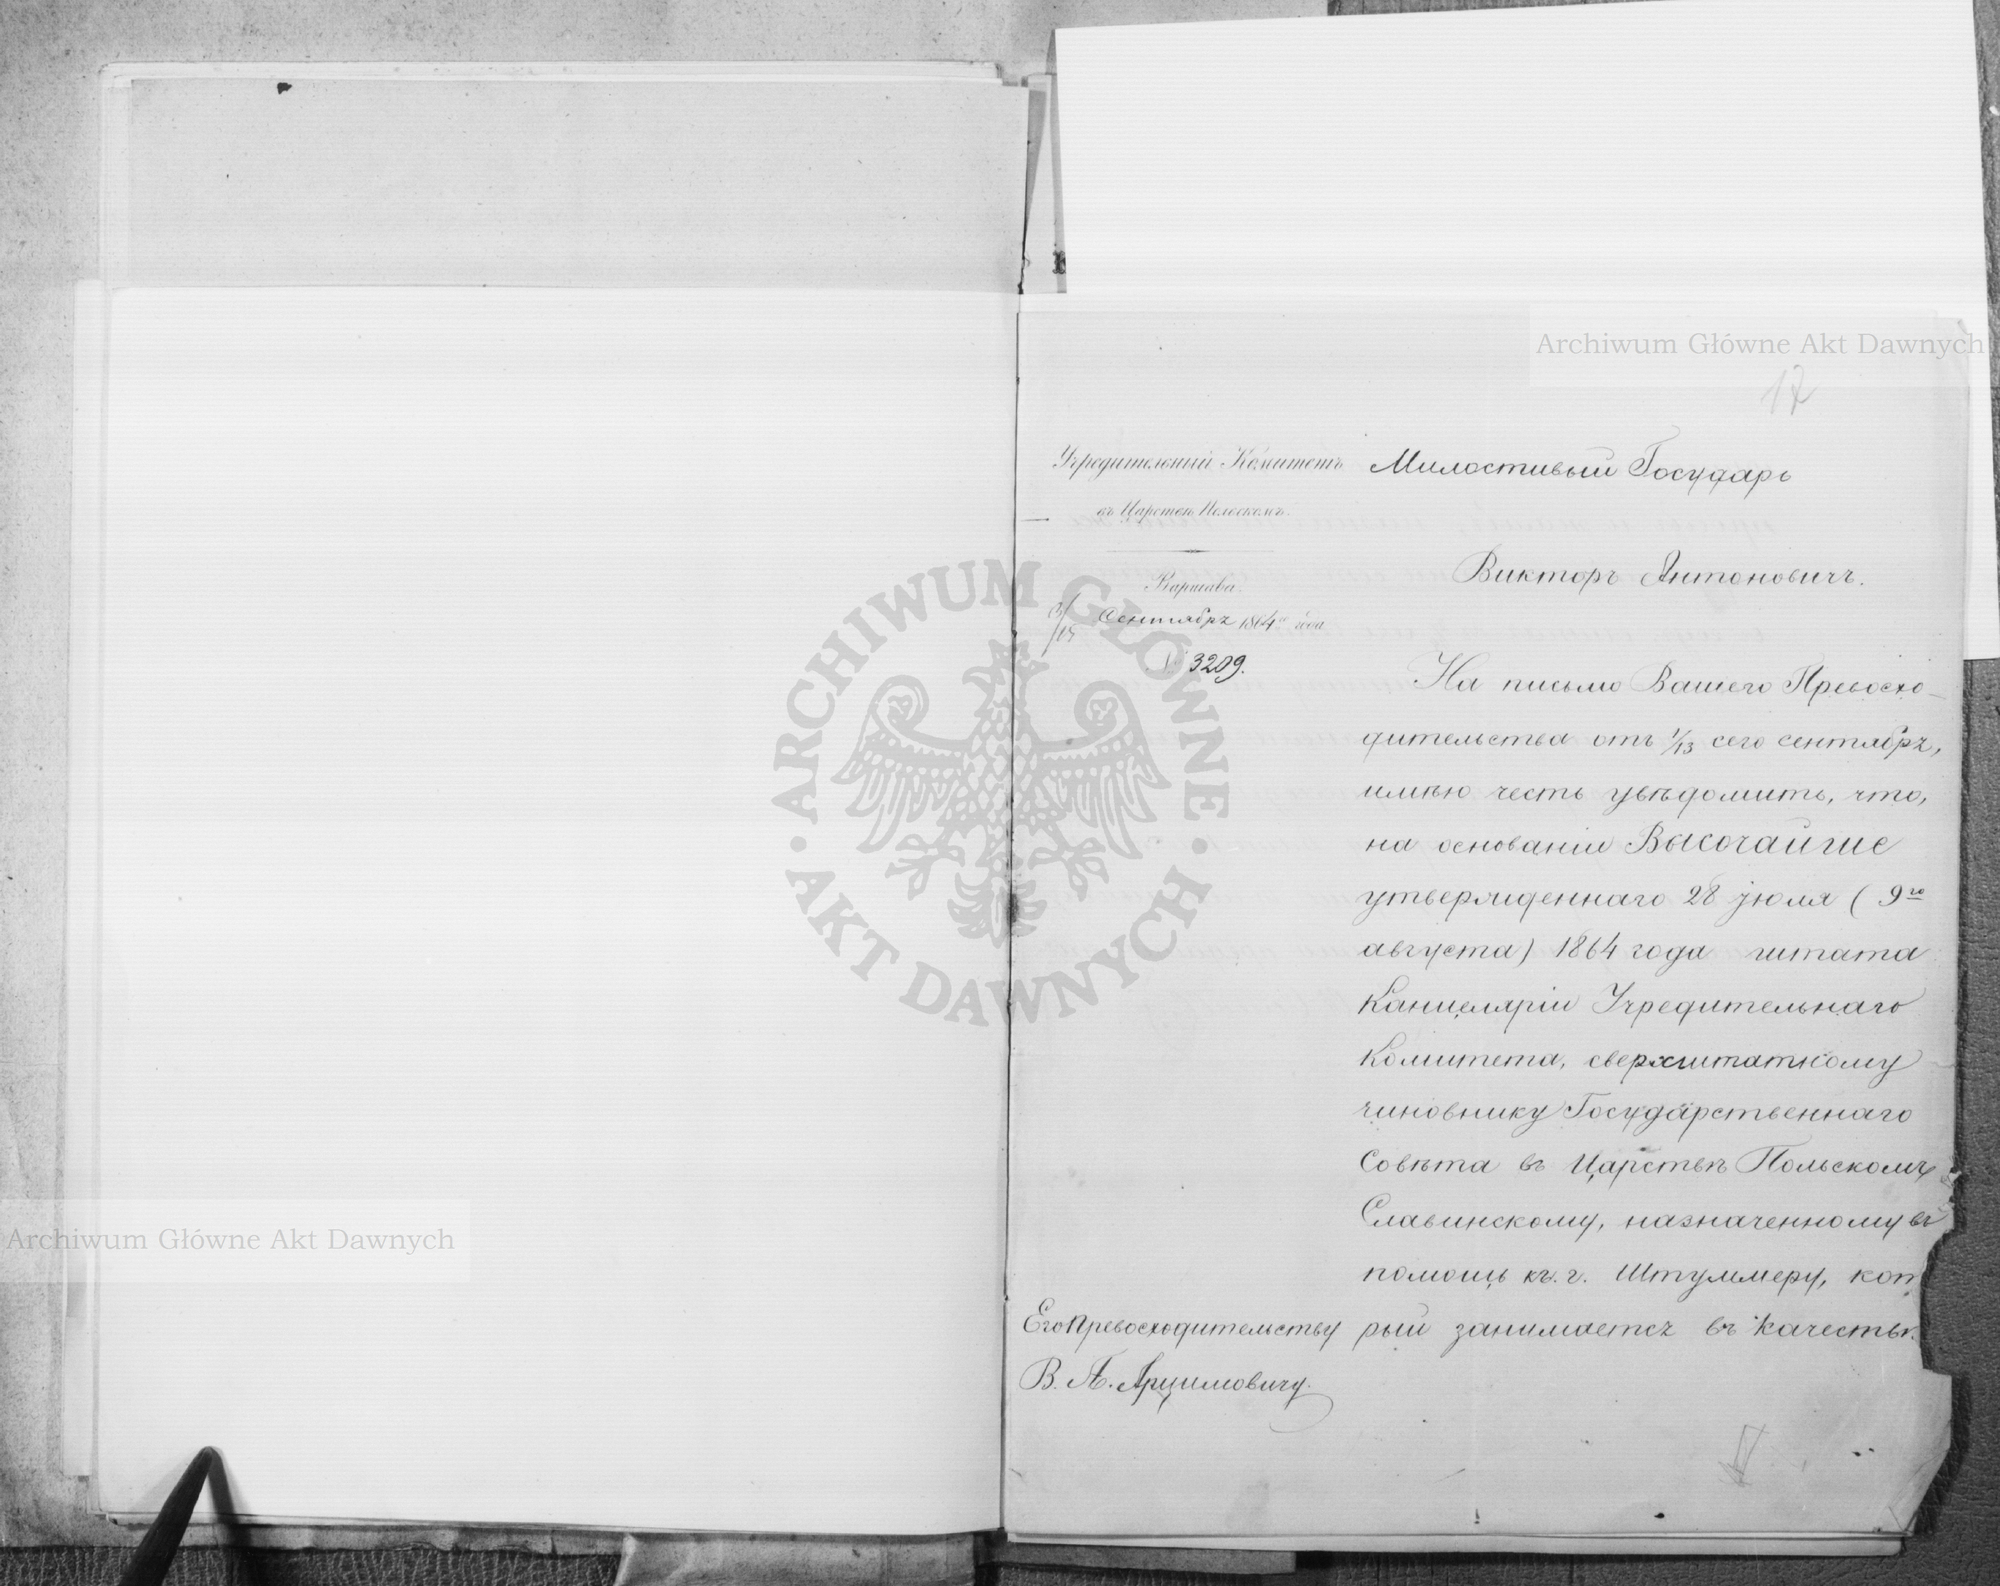 Archiwum Główne Akt Dawnych
17
Учредительный Комитетъ
въ Царствѣ Польскомъ.
Варшава.
3/15 Сентября 1864го года
№ 3209.
Милостивый Государь
Викторъ Антоновичъ.
На письмо Вашего Превосхо-
дительства отъ 1/13 сего сентября,
имѣю честь увѣдомить, что,
на основаніи Высочайше
утвержденнаго 28 іюля (9го
августа) 1864 года штата
Канцеляріи Учредительнаго
Комитета, сверхштатному
чиновнику Государственнаго
Совѣта въ Царствѣ Польскомъ
Славинскому, назначенному въ
помощь къ г. Штуммеру, кот
рый занимается въ качествѣ
Его Превосходительству
В. А. Арцимовичу.
ARCHIWUM GŁÓWNE
AKT DAWNYCH
Archiwum Główne Akt Dawnych